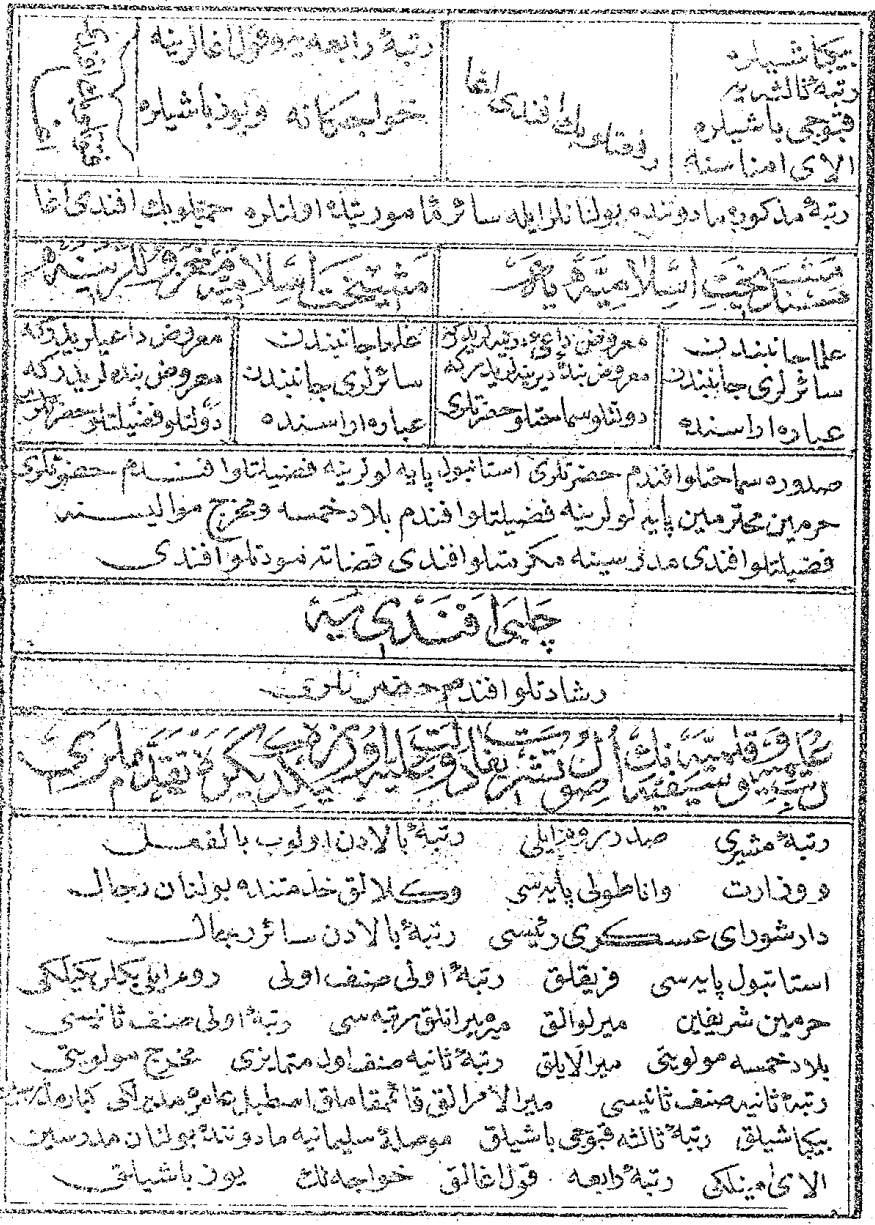 بیكباشیلره
رتبۀ ثالثه‌یه
قپوجی باشیلره
الای امناسنه
رفعتلو بك افندی اغا
رتبۀ رابعه‌یه و قول اغالرینه
خواجكانه و یوزباشیلره
فتوتلو بك افندی اغا
رتبۀ مذكوره مادوننده بولنانلر ایله سائر مأموریتله اولنلره حمیتلو بك افندی اغا
مسند مشیخت اسلامیه‌یه
مشیخت اسلامیه معزوللرینه
علما جانبندن
سائرلری جانبندن
عباره اراسنده
معروض داعیء دیرینه‌لریدركه
معروض بندۀ دیرینه‌لریدركه
دولتلو سماحتلو حضرتلری
علما جانبندن
سائرلری جانبندن
عباره اراسنده
معروض داعیلریدركه
معروض بنده‌لریدركه
دولتلو فضیلتلو حضرتلری
صدوره سماحتلو افندم حضرتلری استانبول پایه لولرینه فضیلتلو افندم حضرتلری
حرمین محترمین پایه لولرینه فضیلتلو افندم بلاد خمسه و مخرج موالیسنه
فضیلتلو افندی مدرسینه مكرمتلو افندی قضاته مودتلو افندی
چلبی افندی‌یه
رشادتلو افندم حضرتلری
علمیه و قلمیه و سیفیه رتب نك اصول تشریفات دولت علیه اوزره یكدیكره تقدملری
رتبۀ مشیری صدر روم ایلی رتبۀ بالادن اولوب بالفعل
و وزارت واناطولی پایه‌سی وكلالق خدمتنده بولنان رجال
دارشورای عسكری رئیسی رتبۀ بالادن سائر رجال
استانبول پایه‌سی فریقلق رتبۀ اولی صنف اولی روم ایلی بكلربكیلكی
حرمین شریفین میرلوالق میرمیرانلق رتبه‌سی رتبۀ اولی صنف ثانیسی
بلاد خمسه مولویتی میرالایلق رتبۀ ثانیه صنف اول متمایزی مخرج مولویتی
رتبۀ ثانیه صنف ثانیسی میرالامرالق قائمقاملق اصطبل عامره مدیرلكی كبار
بیكباشیلق رتبۀ ثالثه قپوجی باشیلق موصلۀ سلیمانیه مادوننده بولنان مدرسین
الای امینلكی رتبۀ رابعه قول اغالق خواجه‌لك یوزباشیلق